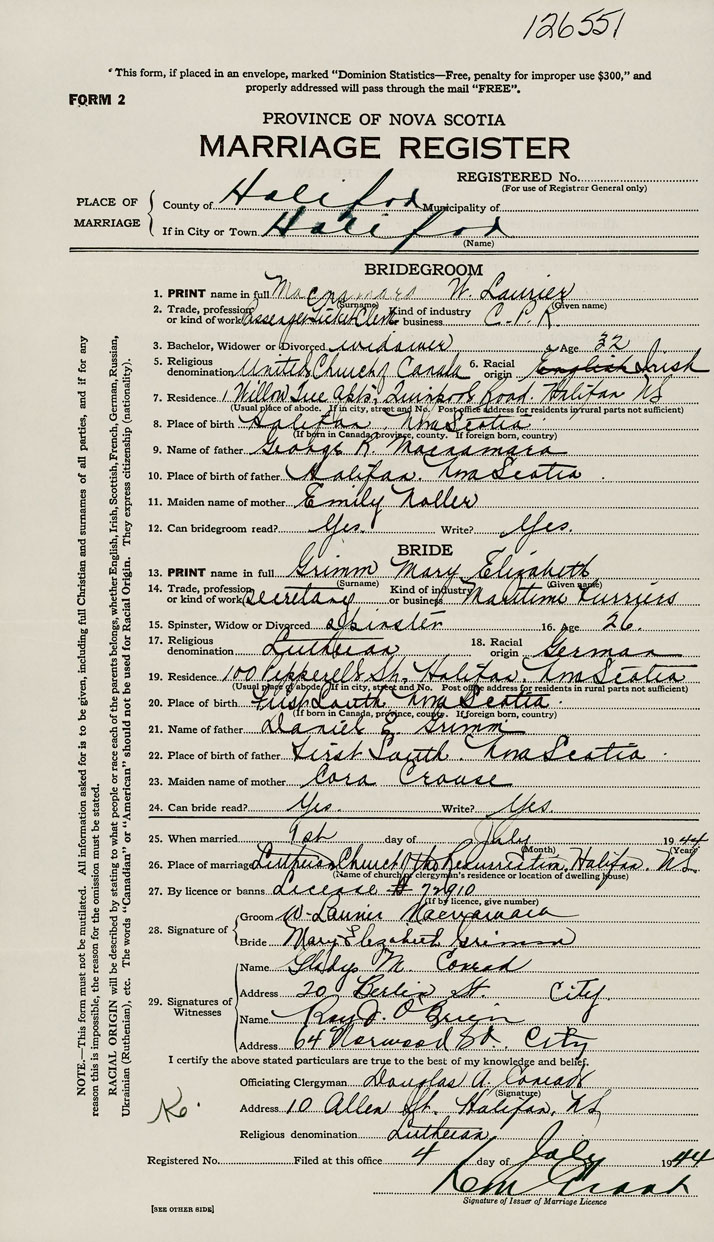 126551
* This form, if placed in an envelope, marked “Dominion Statistics—Free, penalty for improper use $300,” and
properly addressed will pass through the mail “FREE”.
FORM 2
PROVINCE OF NOVA SCOTIA
MARRIAGE REGISTER
REGISTERED No.
(For use of Registrar General only)
PLACE OF MARRIAGE
County of Halifax Municipality of
If in City or Town. Halifax
(Name)
BRIDEGROOM
1. PRINT name in full Macnamara W. Laurier
(Surname) (Given name)
2. Trade, profession or kind of work Passenger Ticket Clerk Kind of industry or business C.P.R.
3. Bachelor, Widower or Divorced widower 4. Age 32
5. Religious denomination United Church of Canada 6. Racial origin English Irish
7. Residence Willow Tree Apts., Quinpool Road, Halifax NS
(Usual place of abode. If in city, street and No. Post office address for residents in rural parts not sufficient)
8. Place of birth Halifax, Nova Scotia
(If born in Canada, province, county. If foreign born, country)
9. Name of father George R. Macnamara
10. Place of birth of father Halifax, Nova Scotia.
11. Maiden name of mother Emily Noller
12. Can bridegroom read? Yes. Write? Yes.
BRIDE
13. PRINT name in full Grimm Mary Elizabeth
(Surname) (Given name)
14. Trade, profession or kind of work Secretary Kind of industry or business Maritime Furriers
15. Spinster, Widow or Divorced spinster 16. Age 26.
17. Religious denomination Lutheran 18. Racial origin German
19. Residence 100 Pepperell St. Halifax. Nova Scotia
(Usual place of abode. If in city, street and No. Post office address for residents in rural parts not sufficient)
20. Place of birth First South Nova Scotia.
(If born in Canada, province, county. If foreign born, country)
21. Name of father Daniel E. Grimm
22. Place of birth of father First South. Nova Scotia.
23. Maiden name of mother Cora Crouse
24. Can bride read? Yes. Write? Yes.
25. When married 1st day of July 1944
(Month) (Year)
26. Place of marriage Lutheran Church of the Resurrection, Halifax NS.
(Name of church or clergyman's residence or location of dwelling house)
27. By licence or banns License # 72910
(If by licence, give number)
28. Signature of
Groom W. Laurier Macnamara
Bride Mary Elizabeth Grimm
29. Signatures of Witnesses
Name Gladys M. Conrad
Address 20 Berlin St. City.
Name Ray J. O'Brien
Address 64 Norwood St. City
I certify the above stated particulars are true to the best of my knowledge and belief.
Officiating Clergyman Douglas A. Conrad
(Signature)
Address 10 Allen St. Halifax, NS
Religious denomination Lutheran
Registered No. Filed at this office 4 day of July 1944
Signature of Issuer of Marriage Licence
[SEE OTHER SIDE]
NOTE.—This form must not be mutilated. All information asked for is to be given, including full Christian and surnames of all parties, and if for any
reason this is impossible, the reason for the omission must be stated.
RACIAL ORIGIN will be described by stating to what people or race each of the parents belongs, whether English, Irish, Scottish, French, German, Russian,
Ukrainian (Ruthenian), etc. The words “Canadian” or “American” should not be used for Racial Origin. They express citizenship (nationality).